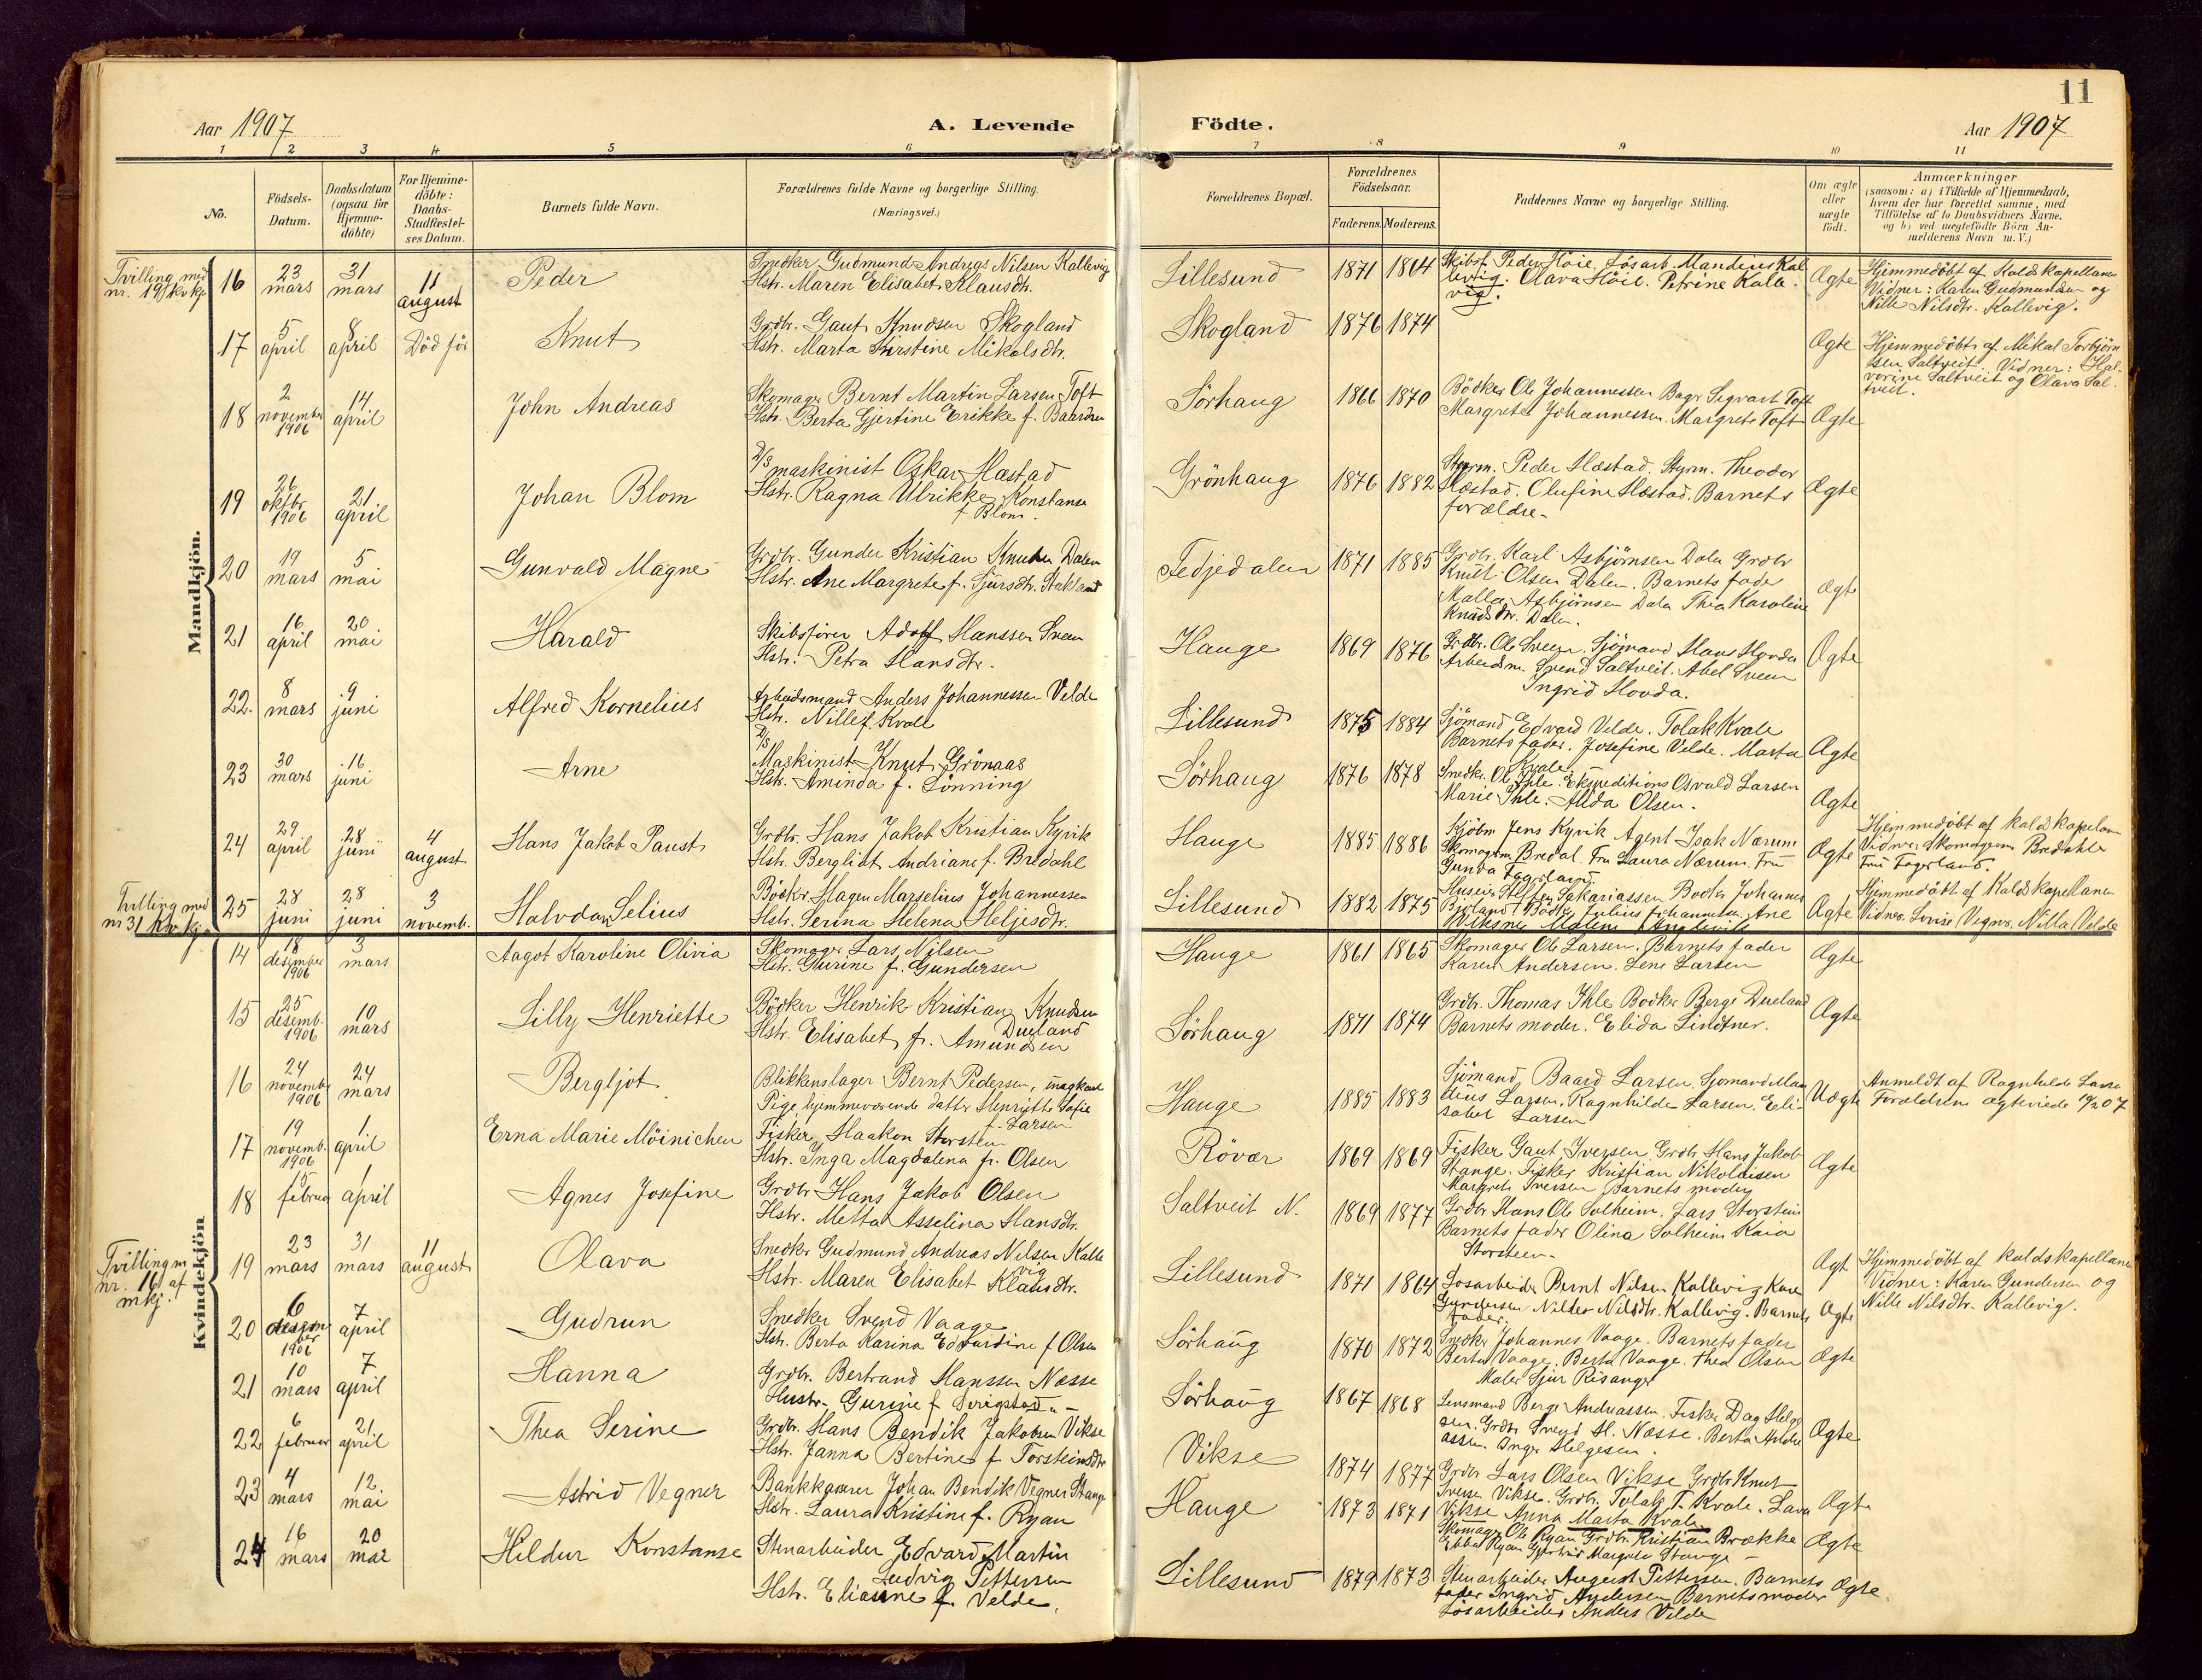 11
Aar 1907
A. Levende Födte.
Aar 1907
1 2 3 4 5 6 7 8 9 10 11
No.
Födsels-Datum.
Daabsdatum (ogsaa for Hjemme-döbte)
For Hjemme-döbte: Daabs-Stadfæstel-ses Datum.
Barnets fulde Navn.
Forældrenes fulde Navne og borgerlige Stilling. (Næringsvei.)
Forældrenes Bopæl.
Forældrenes Födselsaar.
Faderens. Moderens.
Faddernes Navne og borgerlige Stilling.
Om ægte eller uægte födt.
Anmærkninger
(saasom: a) i Tilfælde af Hjemmedaab, hvem der har forrettet samme, med Tilföielse af to Daabsvidners Navne. og b) ved uægtefödte Börn Anmelderens Navn m. V.)
Mandkjön.
Tvilling med nr. 19 kvkj.
16 23 mars 31 mars 11 august Peder
Snedker Gudmund Andreas Nilsen Kallevig
Hstr. Maren Elisabet Klausdtr.
Lillesund 1871 1864
Skibsf. Peder Höie. Lösarb. Mandeus Kallevig. Olava Höie. Petrine Kallevig.
Ægte
Hjemmedöbt af Kaldskapellanen
Vidner: Karen Gudmundsen og
Nille Nilsdtr. Kallevig.
17 5 april 8 april Död för Knut
Grdbr. Gaut Knudsen Skogland
Hstr. Marta Kirstine Mikalsdtr.
Skogland 1876 1874
Ægte
Hjemmedöbt af Mikal Torbjörn
sen Saltveit. Vidner: Hal-
vorine Saltveit og Olava Sal-
tveit.
18 2 november 1906 14 april John Andreas
Skomager Bernt Martin Larsen Toft
Hstr. Berta Gjertine Erikke f. Baardsen
Sörhaug 1866 1870
Bödker Ole Johannessen Bager Sigvart Toft
Margrete Johannessen. Margrete Toft
Ægte
19 26 oktbr 1906 21 april Johan Blom
D/S maskinist Oskar Hæstad
Hstr. Ragna Ulrikke Konstanse
f. Blom.
Grönhaug 1876 1882
Styrm. Peder Hæstad. Styrm. Theodor
Hæstad. Olufine Hæstad. Barnets
forældre.
Ægte
20 19 mars 5 mai Gunvald Magne
Grdbr. Gunder Kristian Knutsen Dalen
Hstr. Ane Margrete f. Sjursdtr. Stakland
Fedjedalen 1871 1885
Grdbr. Karl Asbjörnsen Dalen Grdbr
Knut Olsen Dalen. Barnets fader
Malla Asbjörnsen Dalen Thea Karoline
Knudsdtr. Dalen.
Ægte
21 16 april 20 mai Harald
Skibsförer Adolf Hanssen Sveen
Hstr. Petra Hansdtr.
Hauge 1869 1876
Grdbr. Ole Sveen. Sjömand Hans Hovda
Arbeidsm. Svend Saltveit. Abel Sveen
Ingrid Hovda.
Ægte
22. 8 mars 9 juni Alfred Kornelius
Arbeidsmand Anders Johannessen Velde
Hstr. Nille f. Kvale
Lillesund 1875 1884
Sjömand Edvard Velde. Tolak Kvale
Barnets fader. Josefine Velde. Marta
Kvale.
Ægte
23 30 mars 16 juni Arne
D/S Maskinist Knut Grönaas
Hstr. Aminda f. Lönning
Sörhaug 1876 1878
Snedkr. Ole Ihle. Ekspeditions Osvald Larsen
Marie Ihle. Alida Olsen.
Ægte
24 29 april 28 juni 4 august Hans Jakob Paust
Grdbr. Hans Jakob Kristian Kyvik
Hstr. Bergliot Andriane f. Bredahl
Hauge 1885 1886
Kjöbm Jens Kyvik Agent Isak Nærum
Skomagerm. Bredal. Fru Laura Nærum. Fru
Gunda Fagerland
Ægte
Hjemmedöbt af kaldskapelanen
Vidner: Skomagerm. Bredahl
Fru Fagerland.
Tvilling med nr 31 kv.kj.
25 28 juni 28 juni 3 novemb. Halvdan Selius
Bödker Hagen Marselius Johannessen
Hstr. Serina Helena Heljesdtr.
Lillesund 1882 1875
Ægte
Hjemmedöbt af Kaldskapellanen
Vidner. Lovise Vegner. Nilla Velde
Kvindekjön
14 18 desember 1906 3 mars Aagot Karoline Olivia
Skomager Lars Nilsen
Hstr. Gurine f. Gundersen
Hauge 1861 1865
Skomager Ole Larsen. Barnets fader
Karen Andersen. Lene Larsen
Ægte
15 25 desemb. 1906 10 mars Lilly Henriette
Bödker Henrik Kristian Knudsen
Dueland
Hstr. Elisabet f. Amundsen
Sörhaug 1871 1874
Grdbr. Thomas Ihle Bödker Berge Dueland
Barnets moder. Elida Lindtner.
Ægte
16 24 novembr 1906 24 mars Bergljot
Blikkenslager Bernt Pedersen, ungkarl
Pige, hjemmeværende datter Henriette Sofie
f. Larsen
Hauge 1885 1883
Sjömand Baard Larsen. Sjömand Man
deus Larsen. Ragnhilde Larsen. Eli-
sabet Larsen
Uægte
Anmeldt af Ragnhilde Larsen
Forældrene ægteviede
17 19 novemb. 1906 1. april Erna Marie Möinichen
Fisker Haakon Storsten
Hstr. Inga Magdalena f. Olsen
Rövær 1869 1869
Fisker Gaut Iversen Grdbr. Hans Jakob
Stange. Fisker Kristian Nikolaisen
Margrete Iversen Barnets moder
Ægte
18 15 februar 1 april Agnes Josefine
Grdbr Hans Jakob Olsen
Hstr. Metta Asselina Hansdtr.
Saltveit N. 1869 1877
Grdbr Hans Ole Solheim. Lars Storstein
Barnets fader Olina Solheim Kaia
Storsteen.
Ægt
Tvilling m nr. 16 af mkj.
19 23 mars 31 mars 11 august Olava
Snedker Gudmund Andreas Nilsen Kalle
vig
Hstr. Maren Elisabet Klausdtr.
Lillesund 1871 1864
Lösarbeider Bernt Nilsen Kallevig Karen
Gundersen Nilles Nilsdtr. Kallevig. Barnets
fader.
Ægte
Hjemmedöbt af kaldskapellanen
Vidner: Karen Gundersen og
Nille Nilsdtr. Kallevig.
20 6 desember 1906 7 april Gudrun
Snedker Svend Vaage
Hstr. Berta Karina Edvardine f Olsen
Sörhaug 1870 1872
Snedker Johannes Vaage. Barnets fader
Berta Vaage. Berta Vaage. Thea Olsen
Maler Sjur Risanger
Ægte
21 10 mars 7 april Hanna
Grdbr. Bertrand Hanssen Næsse
Hustr. Gurine f
Sörhaug 1867 1868
Lensmand Berge Andreassen. Fisker Dag Helge
sen. Grdbr Svend H. Næsse. Berta Andre
assen Inger Helgesen.
Ægte
22 6 februar 21 april Thea Serine
Grdbr. Hans Bendik Jakobsen Vikse
Hstr. Janna Bertine f Torsteinsdtr
Vikse 1874 1877
Grdbr Lars Olsen Vikse Grdbr Knut
Iversen Vikse. Grdbr. Tolak T. Kvale. Lava
Vikse Anna Marta Kvale
Ægte
23 4 mars 12. mai Astrid Vegner
Bankkaserer Johan Bendik Vegner Stange
Hstr. Laura Kristine f. Ryan
Hauge 1873 1871
Skomager Ole Ryan Grdbr. Kristian Brække
Ebba Ryan Gjertrud Margrete Stange
Ægte
24 16 mars 20 mai Hildur Konstanse
Stenarbeider Edvard Martin
Ludvig Pettersen
Hstr. Elianne f. Velde.
Lillesund 1879 1873
Stenarbeider August Pettersen. Barnets
fader Ingrid Andersen Barnets moder
Lösarbeider Anders Velde
Ægte.